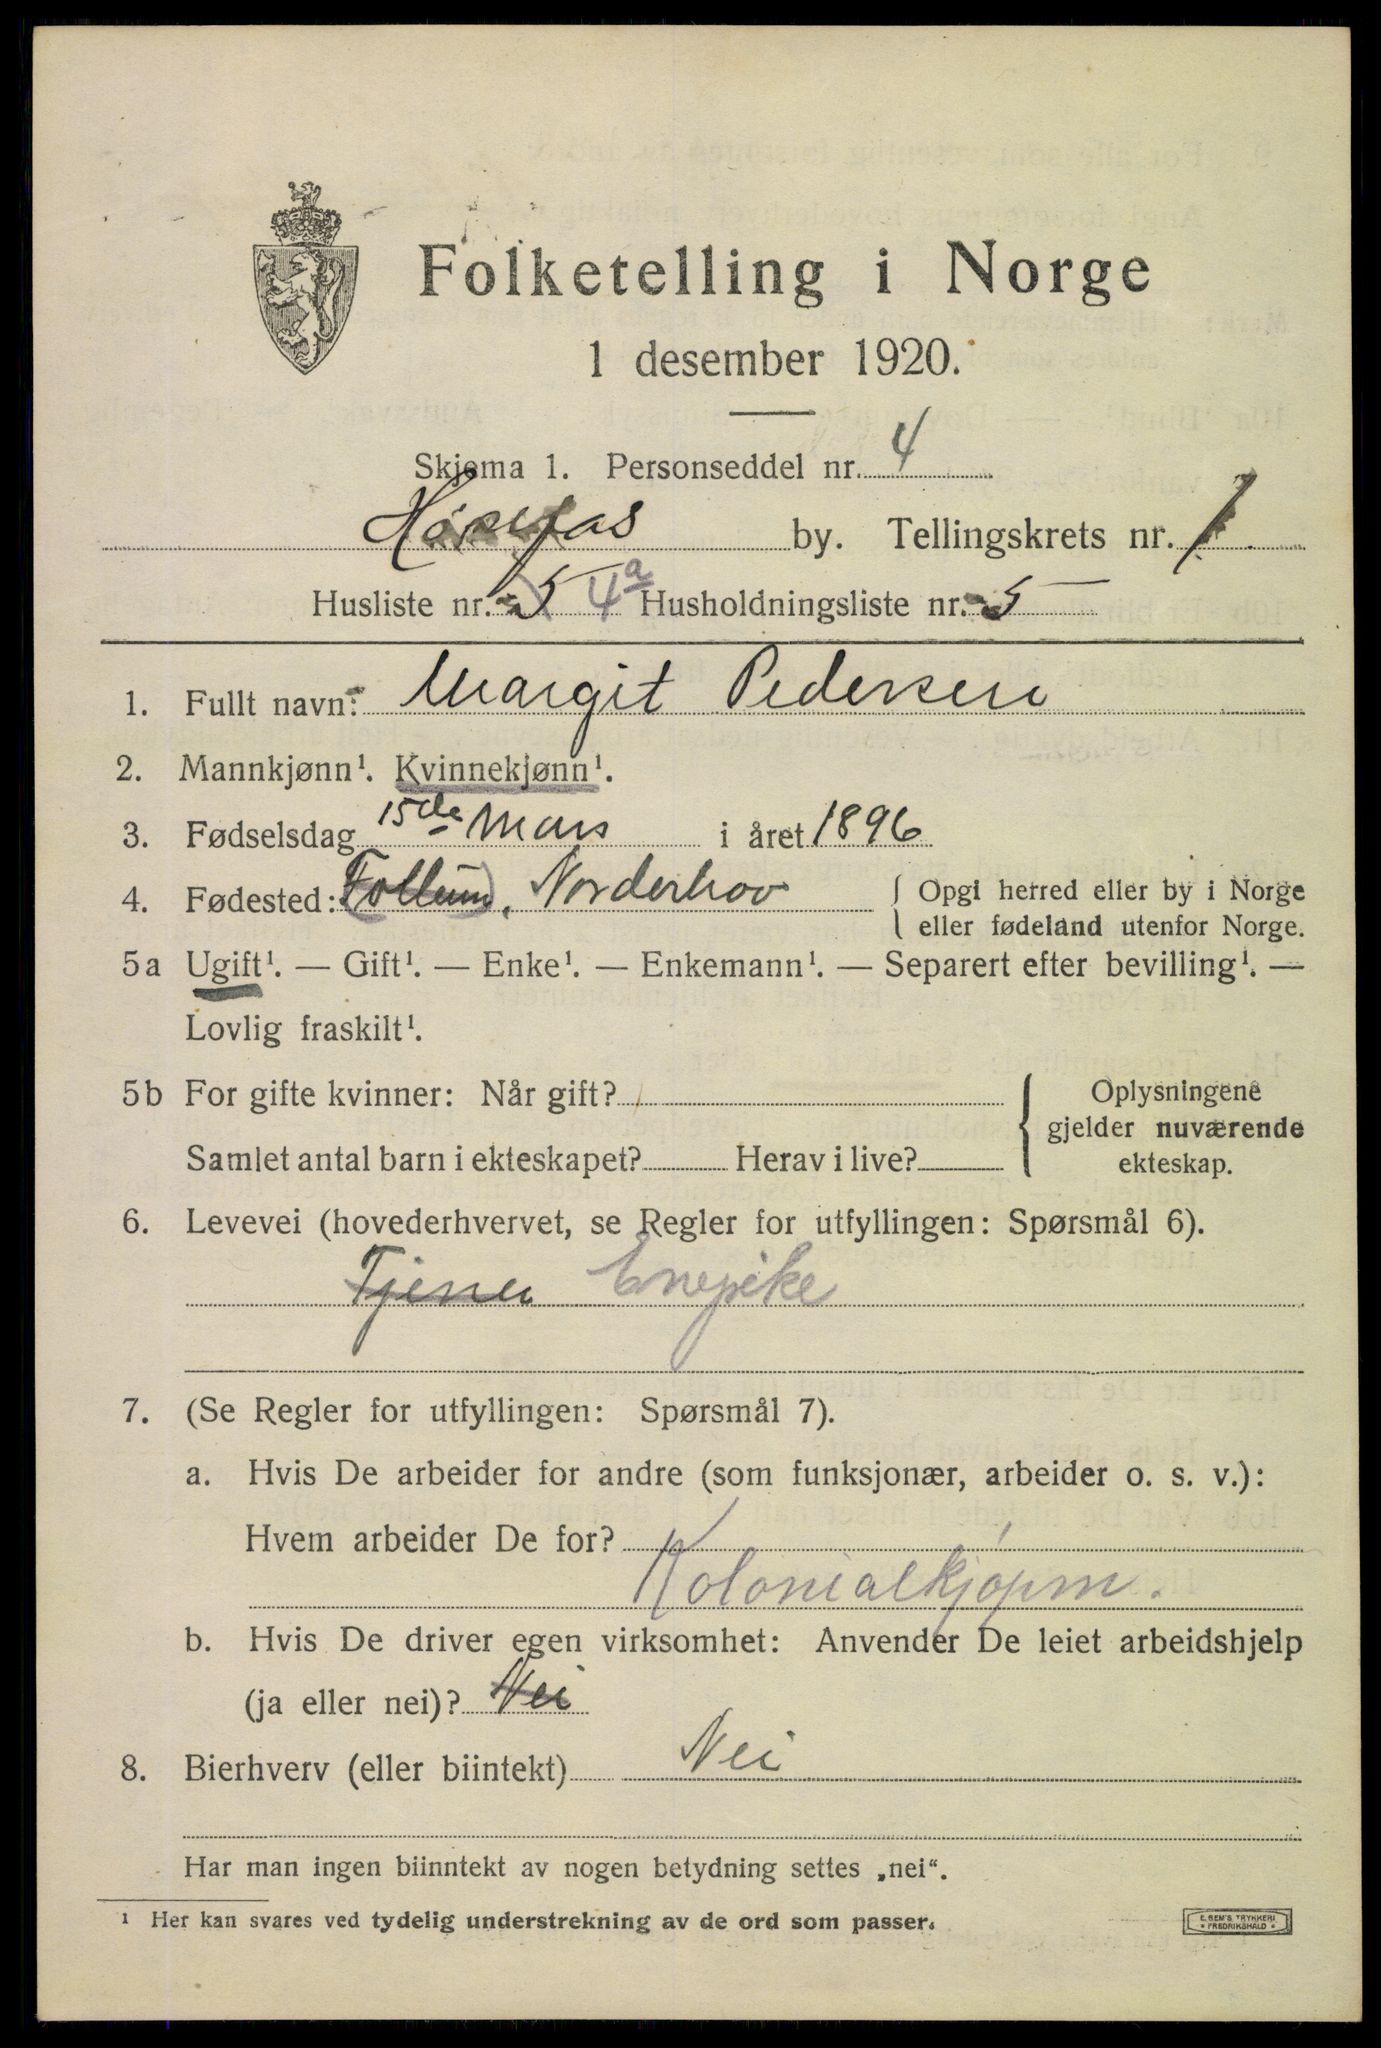 Folketelling i Norge
1 desember 1920.
Skjema 1. Personseddel nr. 4
Hønefos by. Tellingskrets nr. 1
Husliste nr. 5 4a Husholdningsliste nr. 5
1. Fullt navn: Margit Pedersen
2. Mannkjønn¹. Kvinnekjønn¹.
3. Fødselsdag 15de Mars i året 1896
4. Fødested: (Follum), Norderhov { Opgi herred eller by i Norge
eller fødeland utenfor Norge.
5a Ugift¹. — Gift¹. — Enke¹. — Enkemann¹. — Separert efter bevilling¹. —
Lovlig fraskilt¹.
5b For gifte kvinner: Når gift? { Oplysningene
gjelder nuværende
Samlet antal barn i ekteskapet? Herav i live?
ekteskap.
6. Levevei (hovederhvervet, se Regler for utfyllingen: Spørsmål 6).
Tjener Enepike
7. (Se Regler for utfyllingen: Spørsmål 7).
a. Hvis De arbeider for andre (som funksjonær, arbeider o. s. v.):
Hvem arbeider De for?
Kolonialkjøpm.
b. Hvis De driver egen virksomhet: Anvender De leiet arbeidshjelp
(ja eller nei)? Nei
8. Bierhverv (eller biintekt) Nei
Har man ingen biinntekt av nogen betydning settes „nei“.
¹ Her kan svares ved tydelig understrekning av de ord som passer.
E. SEM'S TRYKKERI
* FREDRIKSHALD *